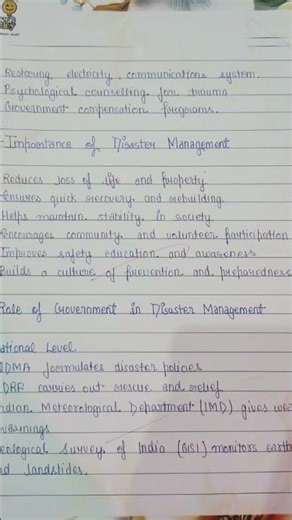 Restoring electricity, communications system.
Psychological counselling for trauma
Government compensation programs.
Importance of Disaster Management
Reduces loss of life and property
Ensures quick recovery and rebuilding
Helps maintain stability in society
Encourages community and volunteer participation
Improves safety education and awareness
Builds a culture of prevention and preparedness
Role of Government in Disaster Management
ational Level
DMA formulates disaster policies
DRF carries out rescue and relief
ndian Meteorological Department (IMD) gives wea
warnings
eological Survey of India (GSI) monitors earth
nd landslides.